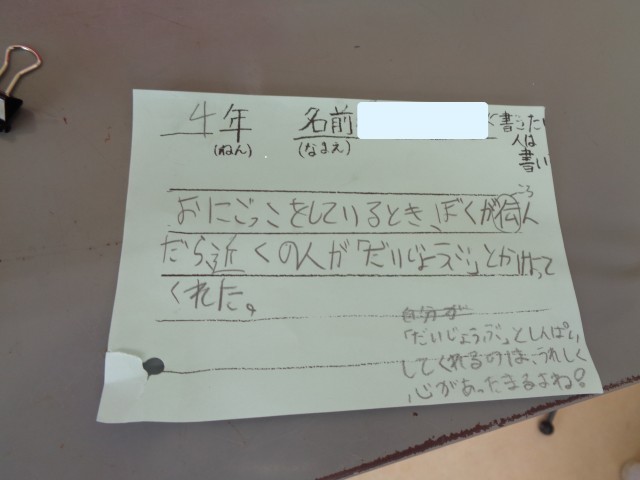 4年 名前
(ねん) (なまえ)
書きたい
人は
書い
ころ
おにごっこをしているとき、ぼくが人
だら、近くの人が「だいじょうぶ」とかけよって
くれた。
自分が
「だいじょうぶ」としんぱい
してくれるのは、うれしく
心があったまるよね!